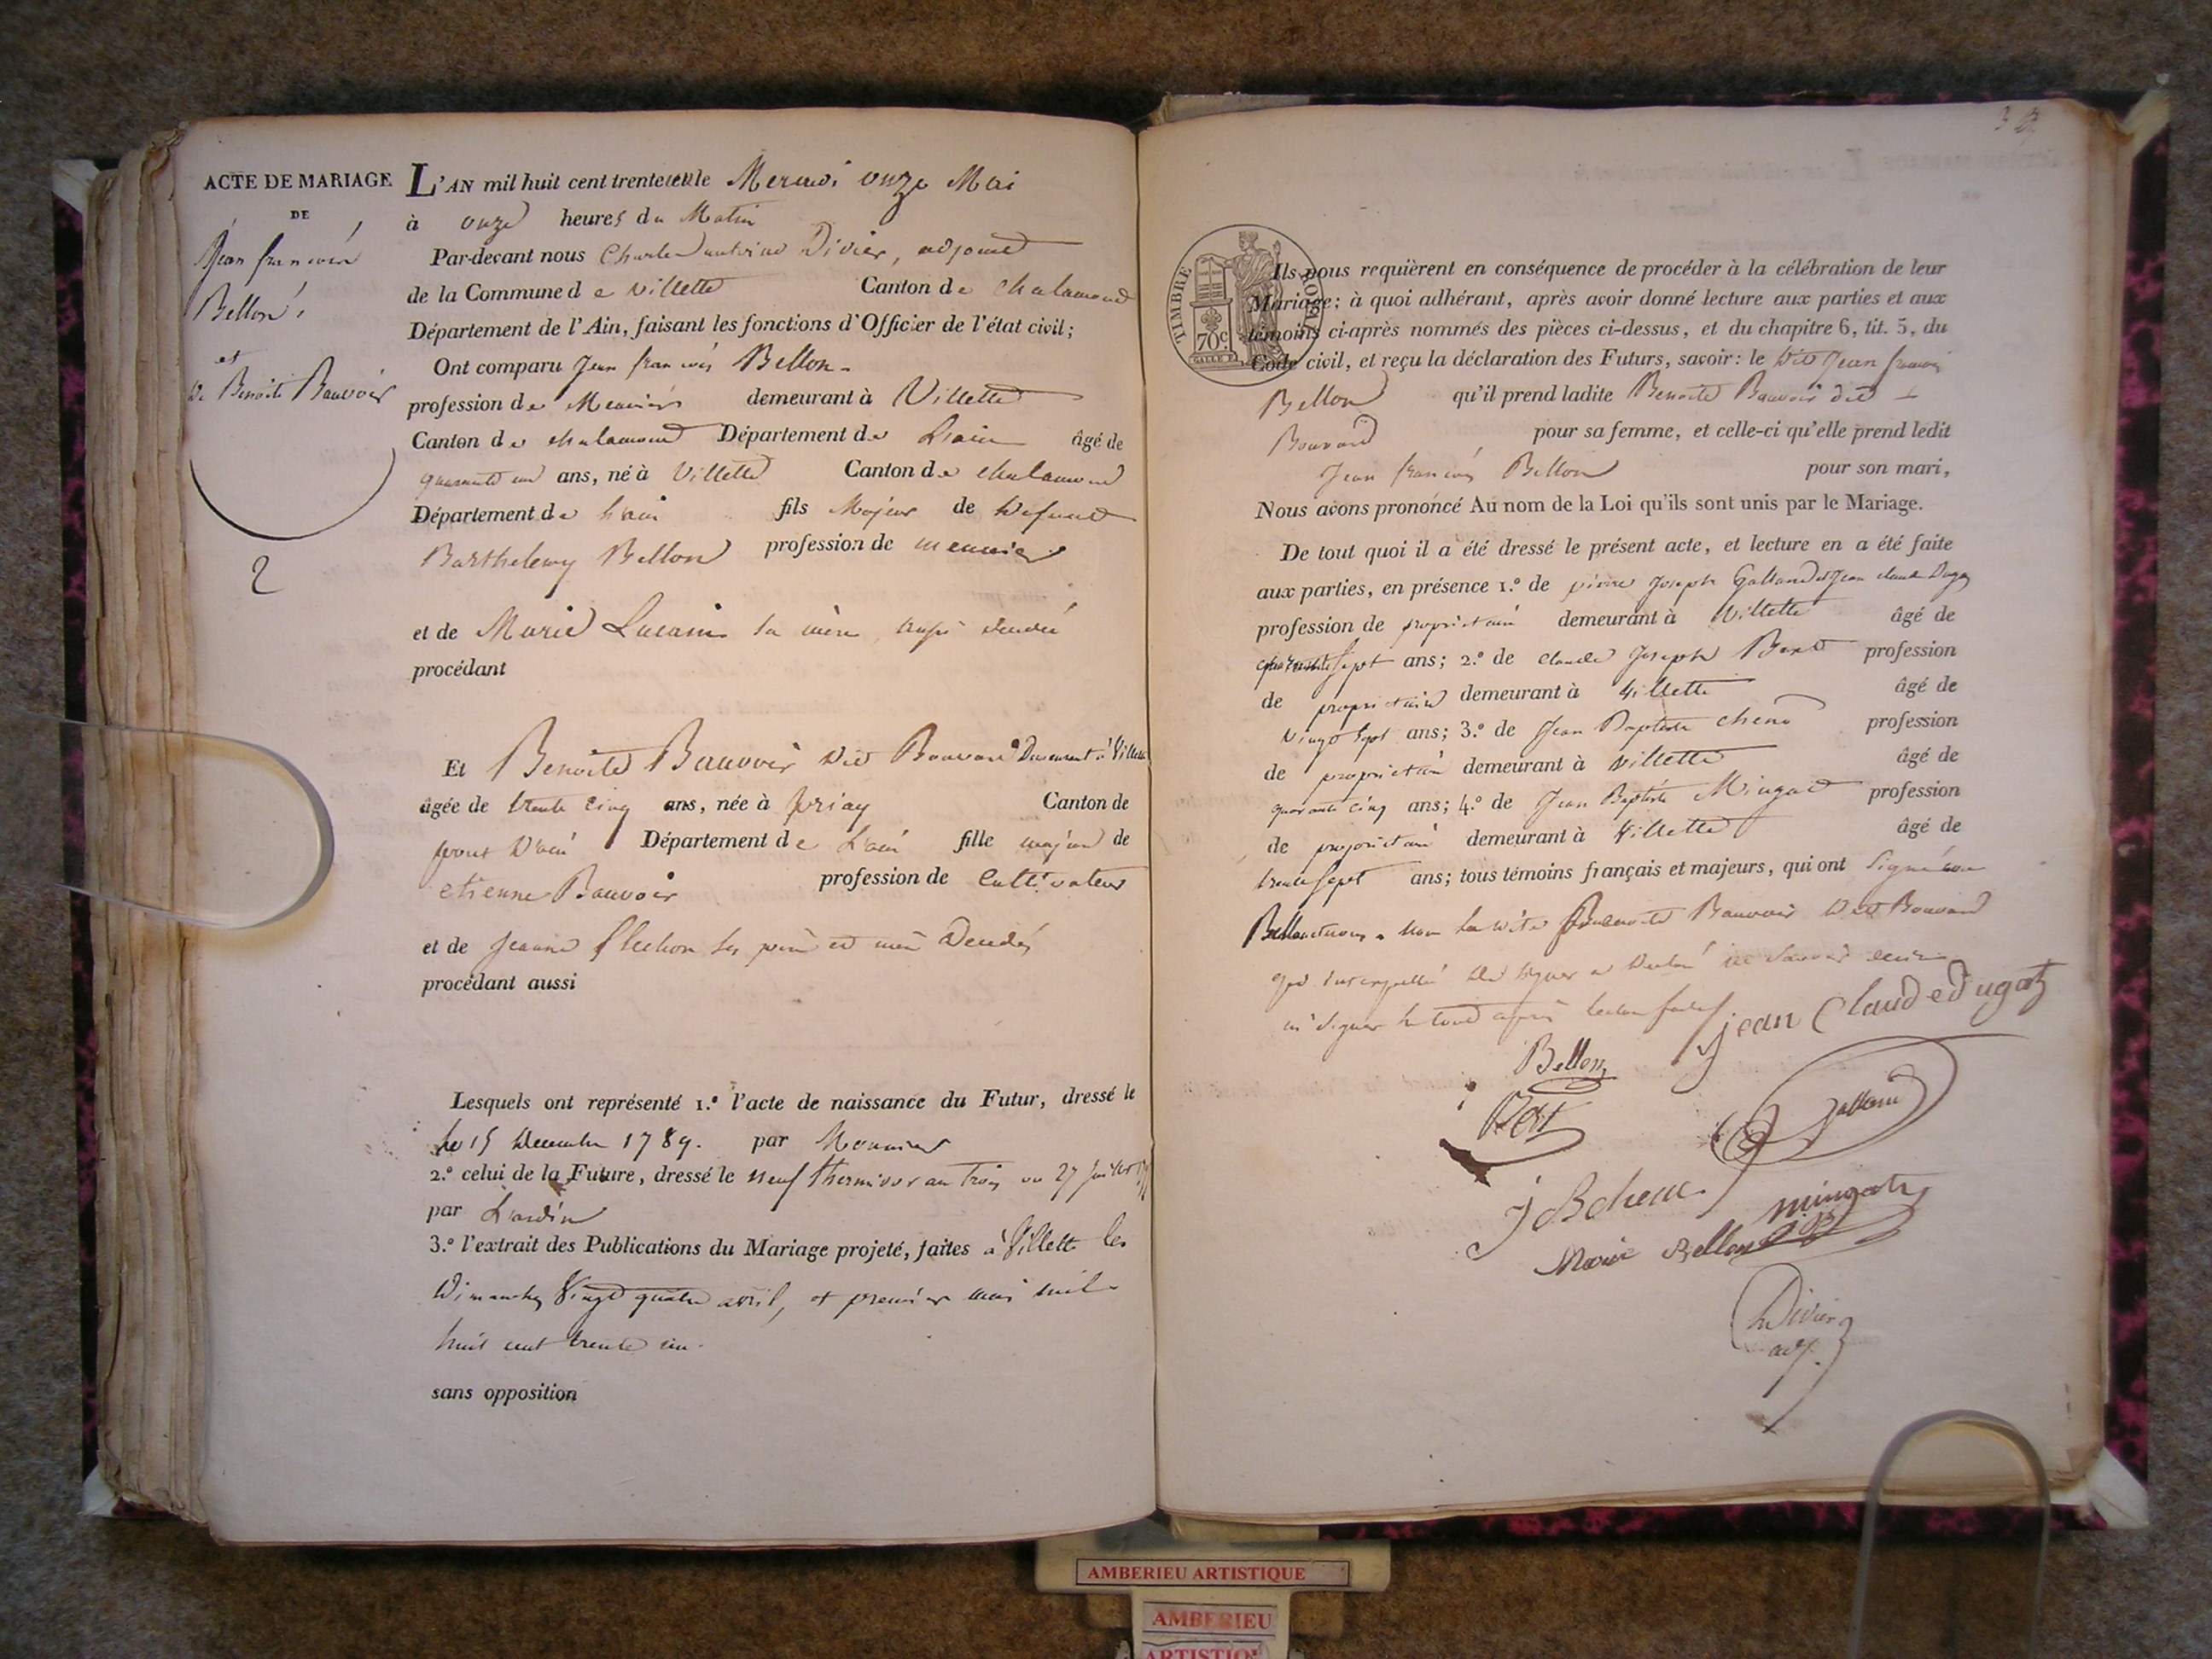 ACTE DE MARIAGE
DE
Jean francois
Bellon
et
De Benoite Bauvoir
2
L'AN mil huit cent trente le Mercredi onze Mai
à onze heures du Matin
Par-devant nous Charles antoine Divier, adjoint
de la Commune de villette Canton de chalamont
Département de l'Ain, faisant les fonctions d'Officier de l'état civil;
Ont comparu Jean francois Bellon
profession de Meunier demeurant à Villette
Canton de chalamont Département de L'ain âgé de
quarante un ans, né à Villette Canton de chalamont
Département de L'ain fils Majeur de Defunt
Barthelemy Bellon profession de meunier
et de Marie sa mère aussi
procédant
Et Benoite Bauvoir dit Bouvard Demeurant à Villette
âgée de trente cinq ans, née à priay Canton de
pont D'ain Département de L'ain fille majeure de
etienne Bauvoir profession de Cultivateur
et de Jeanne flechon ses père et mère Décédés
procédant aussi
Lesquels ont représenté 1.º l'acte de naissance du Futur, dressé le
le 15 Decembre 1789. par Mounier
2.º celui de la Future, dressé le neuf thermidor an trois ou 27 Juillet
par
3.º l'extrait des Publications du Mariage projeté, faites à Villette les
Dimanches Vingt quatre avril, et premier mai mil
huit cent trente un.
sans opposition
TIMBRE ROYAL
70 c.
Ils nous requièrent en conséquence de procéder à la célébration de leur
Mariage; à quoi adhérant, après avoir donné lecture aux parties et aux
témoins ci-après nommés des pièces ci-dessus, et du chapitre 6, tit. 5, du
Code civil, et reçu la déclaration des Futurs, savoir: le dit Jean francois
Bellon qu'il prend ladite Benoite Bauvoir dit
Bouvard pour sa femme, et celle-ci qu'elle prend ledit
Jean francois Bellon pour son mari,
Nous avons prononcé Au nom de la Loi qu'ils sont unis par le Mariage.
De tout quoi il a été dressé le présent acte, et lecture en a été faite
aux parties, en présence 1.º de pierre Joseph Galland et Jean claude Dugas
profession de proprietaire demeurant à Villette âgé de
sept ans; 2.º de claude Joseph profession
de proprietaire demeurant à Villette âgé de
vingt sept ans; 3.º de Jean Baptiste chene profession
de proprietaire demeurant à villette âgé de
quarante cinq ans; 4.º de Jean Baptiste Mingat profession
de proprietaire demeurant à Villette âgé de
trente sept ans; tous témoins français et majeurs, qui ont Signé
non la dite Benoite Bauvoir dit Bouvard
qui interpellée de signer a declaré ne savoir ecrire
ni signer le tout après lecture faite
jean Claude dugat
Bellon
Galland
J B chene
mingat
Marie Bellon
Divier
adj.
AMBERIEU ARTISTIQUE
AMBERIEU